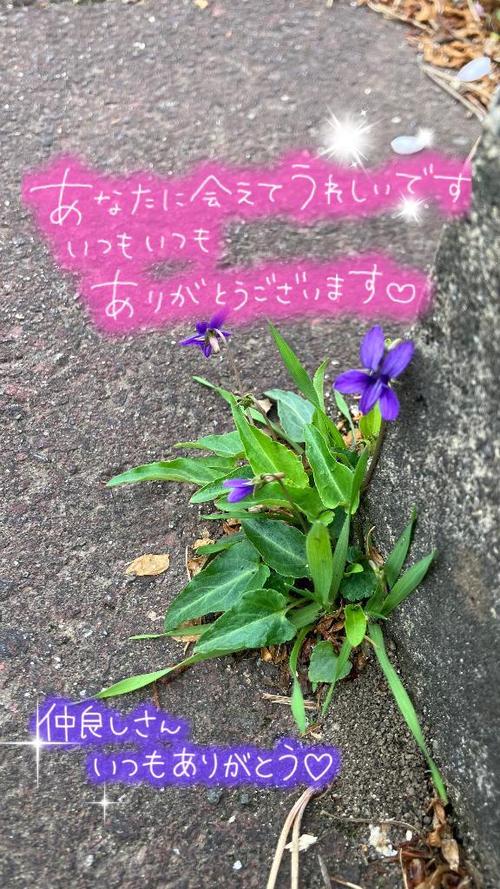 あなたに会えてうれしいです
いつもいつも
ありがとうございます♡
仲良しさん
いつもありがとう♡